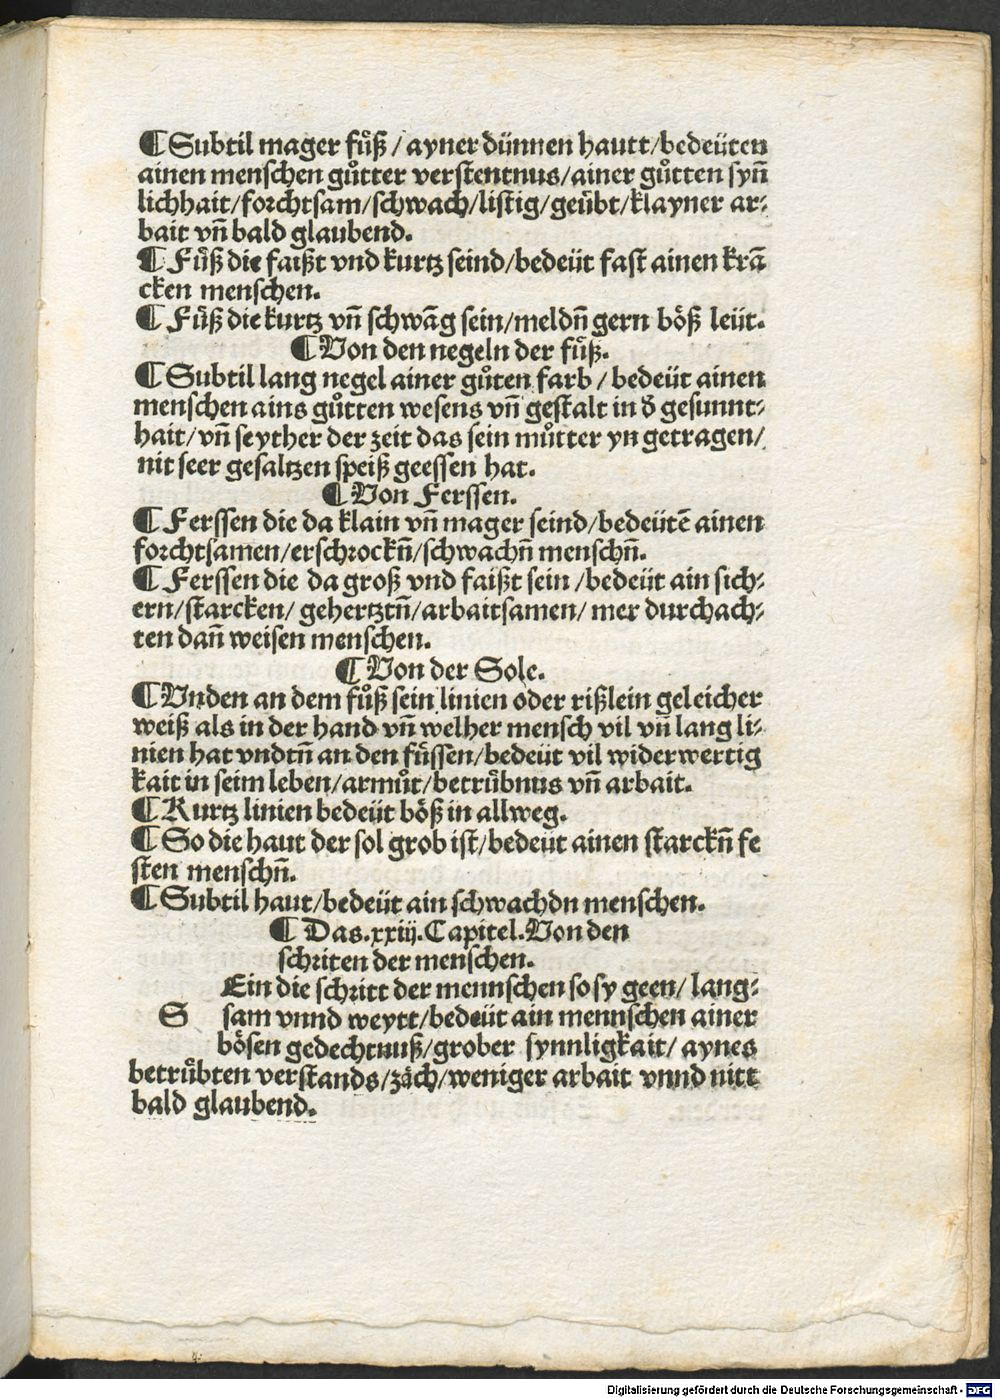 ¶ Subtil mager fuͤß / ayner dünnen hautt/bedeüten
ainen menschen guͦtter verstentnus/ainer guͦtten syñ
lichhait/forchtsam/schwach/listig/geuͤbt/klayner ar⸗
bait vñ bald glaubend.
¶ Fuͤß die faißt vnd kurtz seind/bedeüt fast ainen krã
cken menschen.
¶ Fuͤß die kurtz vñ schwãg sein/meldñ gern boͤß leüt.
¶ Von den negeln der fuͤß.
¶ Subtil lang negel ainer guͦten farb / bedeüt ainen
menschen ains guͦtten wesens vñ gestalt in ð gesunnt⸗
hait/vñ seyther der zeit das sein muͦtter yn getragen/
nit seer gesaltzen speiß geessen hat.
¶ Von Ferssen.
¶ Ferssen die da klain vñ mager seind/bedeütẽ ainen
forchtsamen/erschrockñ/schwachñ menschñ.
¶ Ferssen die da groß vnd faißt sein /bedeüt ain sich⸗
ern/starcken/ gehertztñ/arbaitsamen/ mer durchach⸗
ten dañ weisen menschen.
¶ Von der Sole.
¶ Vnden an dem fuͦß sein linien oder rißlein geleicher
weiß als in der hand vñ welher mensch vil vñ lang li⸗
nien hat vndtñ an den fuͤssen/bedeüt vil widerwertig
kait in seim leben/armuͦt/betruͤbnus vñ arbait.
¶ Kurtz linien bedeüt boͤß in allweg.
¶ So die haut der sol grob ist/bedeüt ainen starckñ fe
sten menschñ.
¶ Subtil haut/bedeüt ain schwachdn menschen.
¶ Das .xxiij. Capitel. Von den
schriten der menschen.
Ein die schritt der mennschen so sy geen/ lang⸗
S sam vnnd weytt/bedeüt ain mennschen ainer
boͤsen gedechtnuß/grober synnligkait/ aynes
betruͤbten verstands/zaͤch/weniger arbait vnnd nitt
bald glaubend.
Digitalisierung gefördert durch die Deutsche Forschungsgemeinschaft - DFG